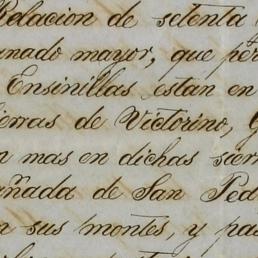 Relacion de setenta
anado mayor, que per
Ensinillas estan en
ierras de Victorino, G
n mas en dichas sierr
añada de San Ped
n sus montes, y pas